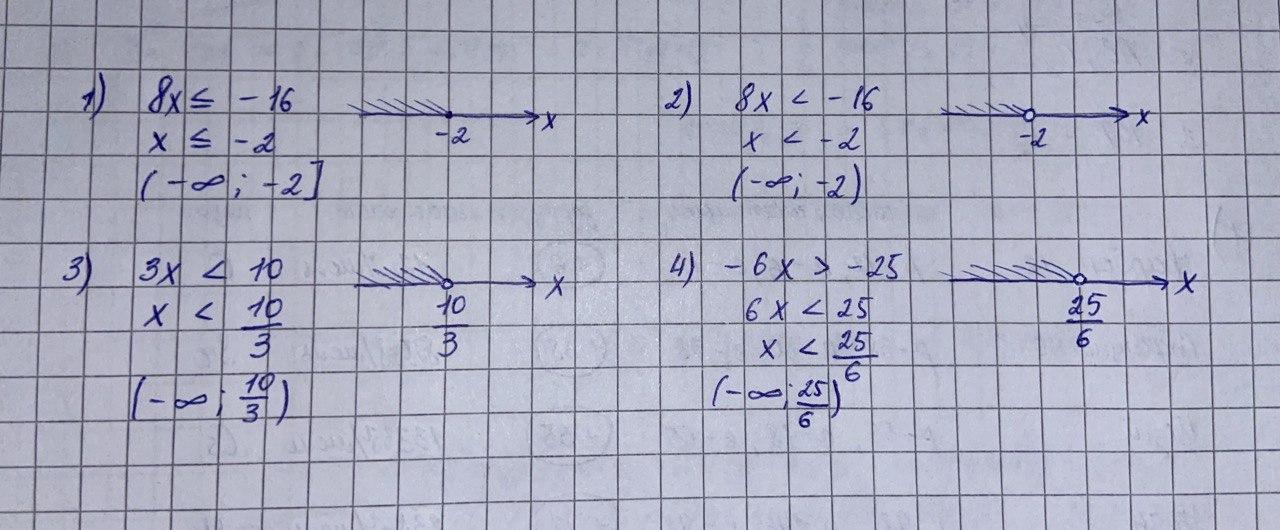 1) 8x ≤ -16
x ≤ -2
(-∞; -2]
-2 x
2) 8x < -16
x < -2
(-∞; -2)
-2 x
3) 3x < 10
x < 10/3
(-∞; 10/3)
10/3 x
4) -6x > -25
6x < 25
x < 25/6
(-∞; 25/6)
25/6 x